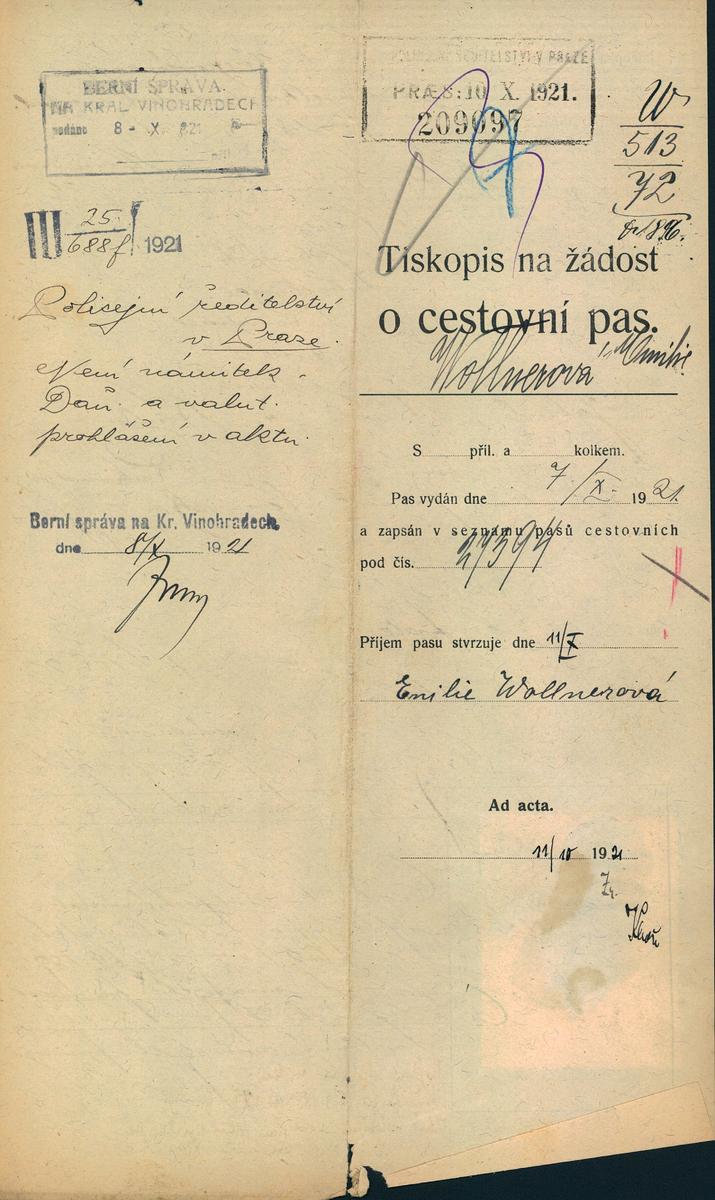 BERNÍ SPRÁVA
NA KRÁL. VINOHRADECH
podáno 8 - X. 921
III 25/688f 1921
Policejní ředitelství
v Praze.
Není námitek.
Daň. a valut.
prohlášení v aktu.
Berní správa na Kr. Vinohradech,
dne 8/X 1921
POLICEJNÍ ŘEDITELSTVÍ V PRAZE
PRÆS: 10 X. 1921.
209097
W
513
72
Tiskopis na žádost
o cestovní pas.
Wollnerová Emilie
S příl. a kolkem.
Pas vydán dne 7/X. 1921.
a zapsán v seznamu pasů cestovních
pod čís. 27394
Příjem pasu stvrzuje dne 11/X
Emilie Wollnerová
Ad acta.
11/10 1921